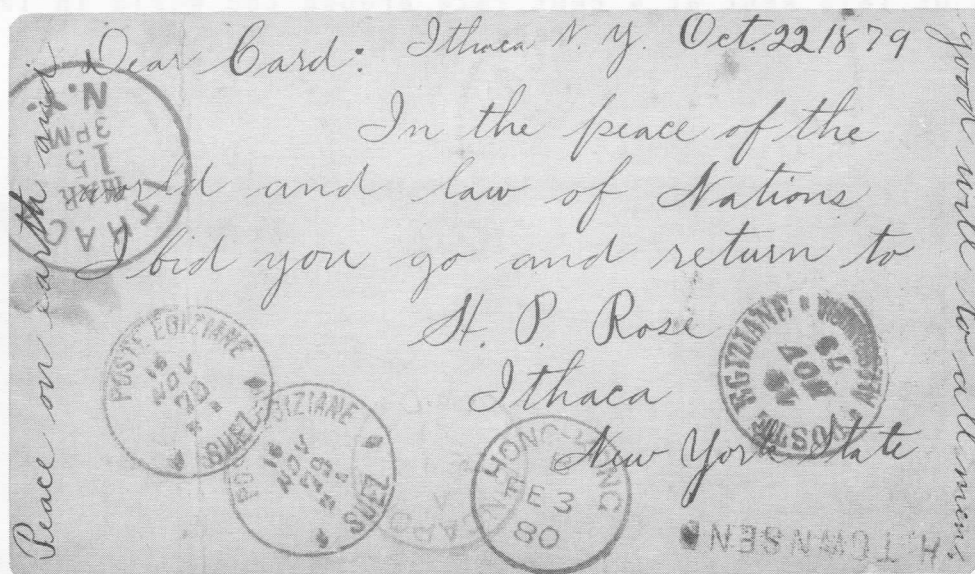 Dear Card: Ithaca N. Y. Oct. 22 1879
In the peace of the
world and law of Nations
I bid you go and return to
H. P. Rose
Ithaca
New York State
Peace on earth and
good will to all men.
ITHACA
N.Y.
MAR
15
3 PM
POSTE EGIZIANE
16
NOV
79
SUEZ
POSTE EGIZIANE
16
NOV
79
SUEZ
POSTE EGIZIANE
NOV
79
HONG-KONG
FE 3
80
H TOWNSEN